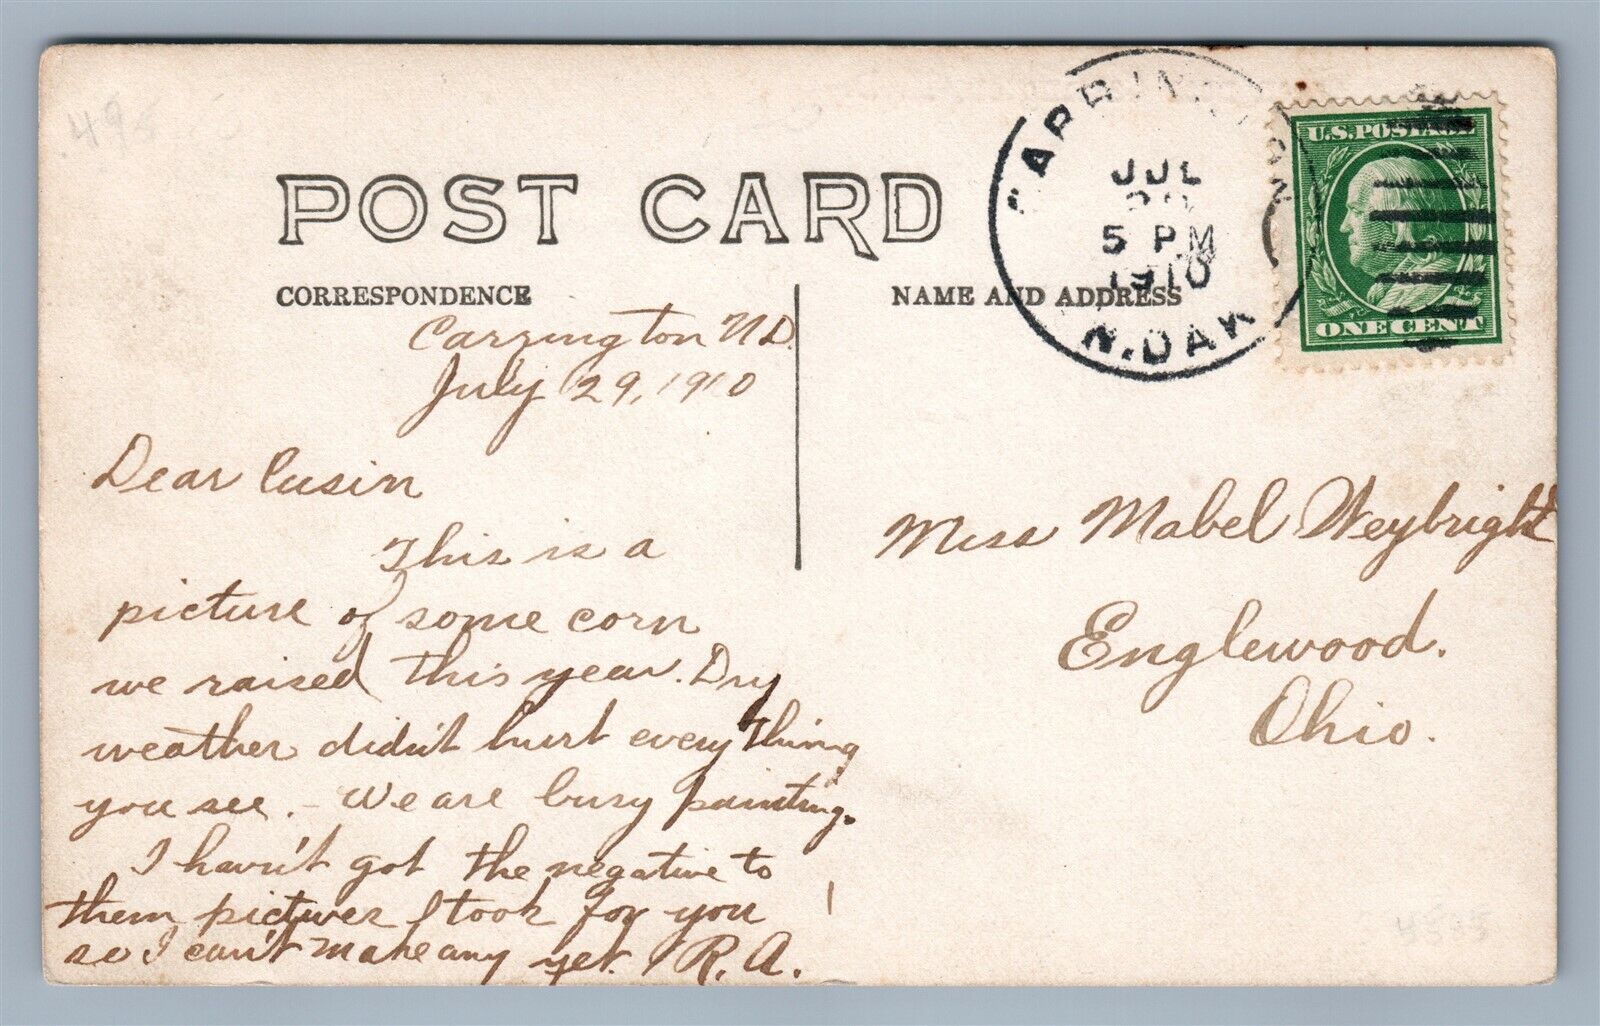 POST CARD
CORRESPONDENCE
NAME AND ADDRESS
CARRINGTON
JUL
5 PM
1910
N. DAK
U.S. POSTAGE
ONE CENT
Carrington ND.
July 29, 1910
Dear Cusin
This is a
picture of some corn
we raised this year. Dry
weather didn't hurt every thing
you see. - We are busy painting.
I havn't got the negative to
them pictures I took for you
so I can't make any yet. R. A.
Miss Mabel Weybright
Englewood.
Ohio.